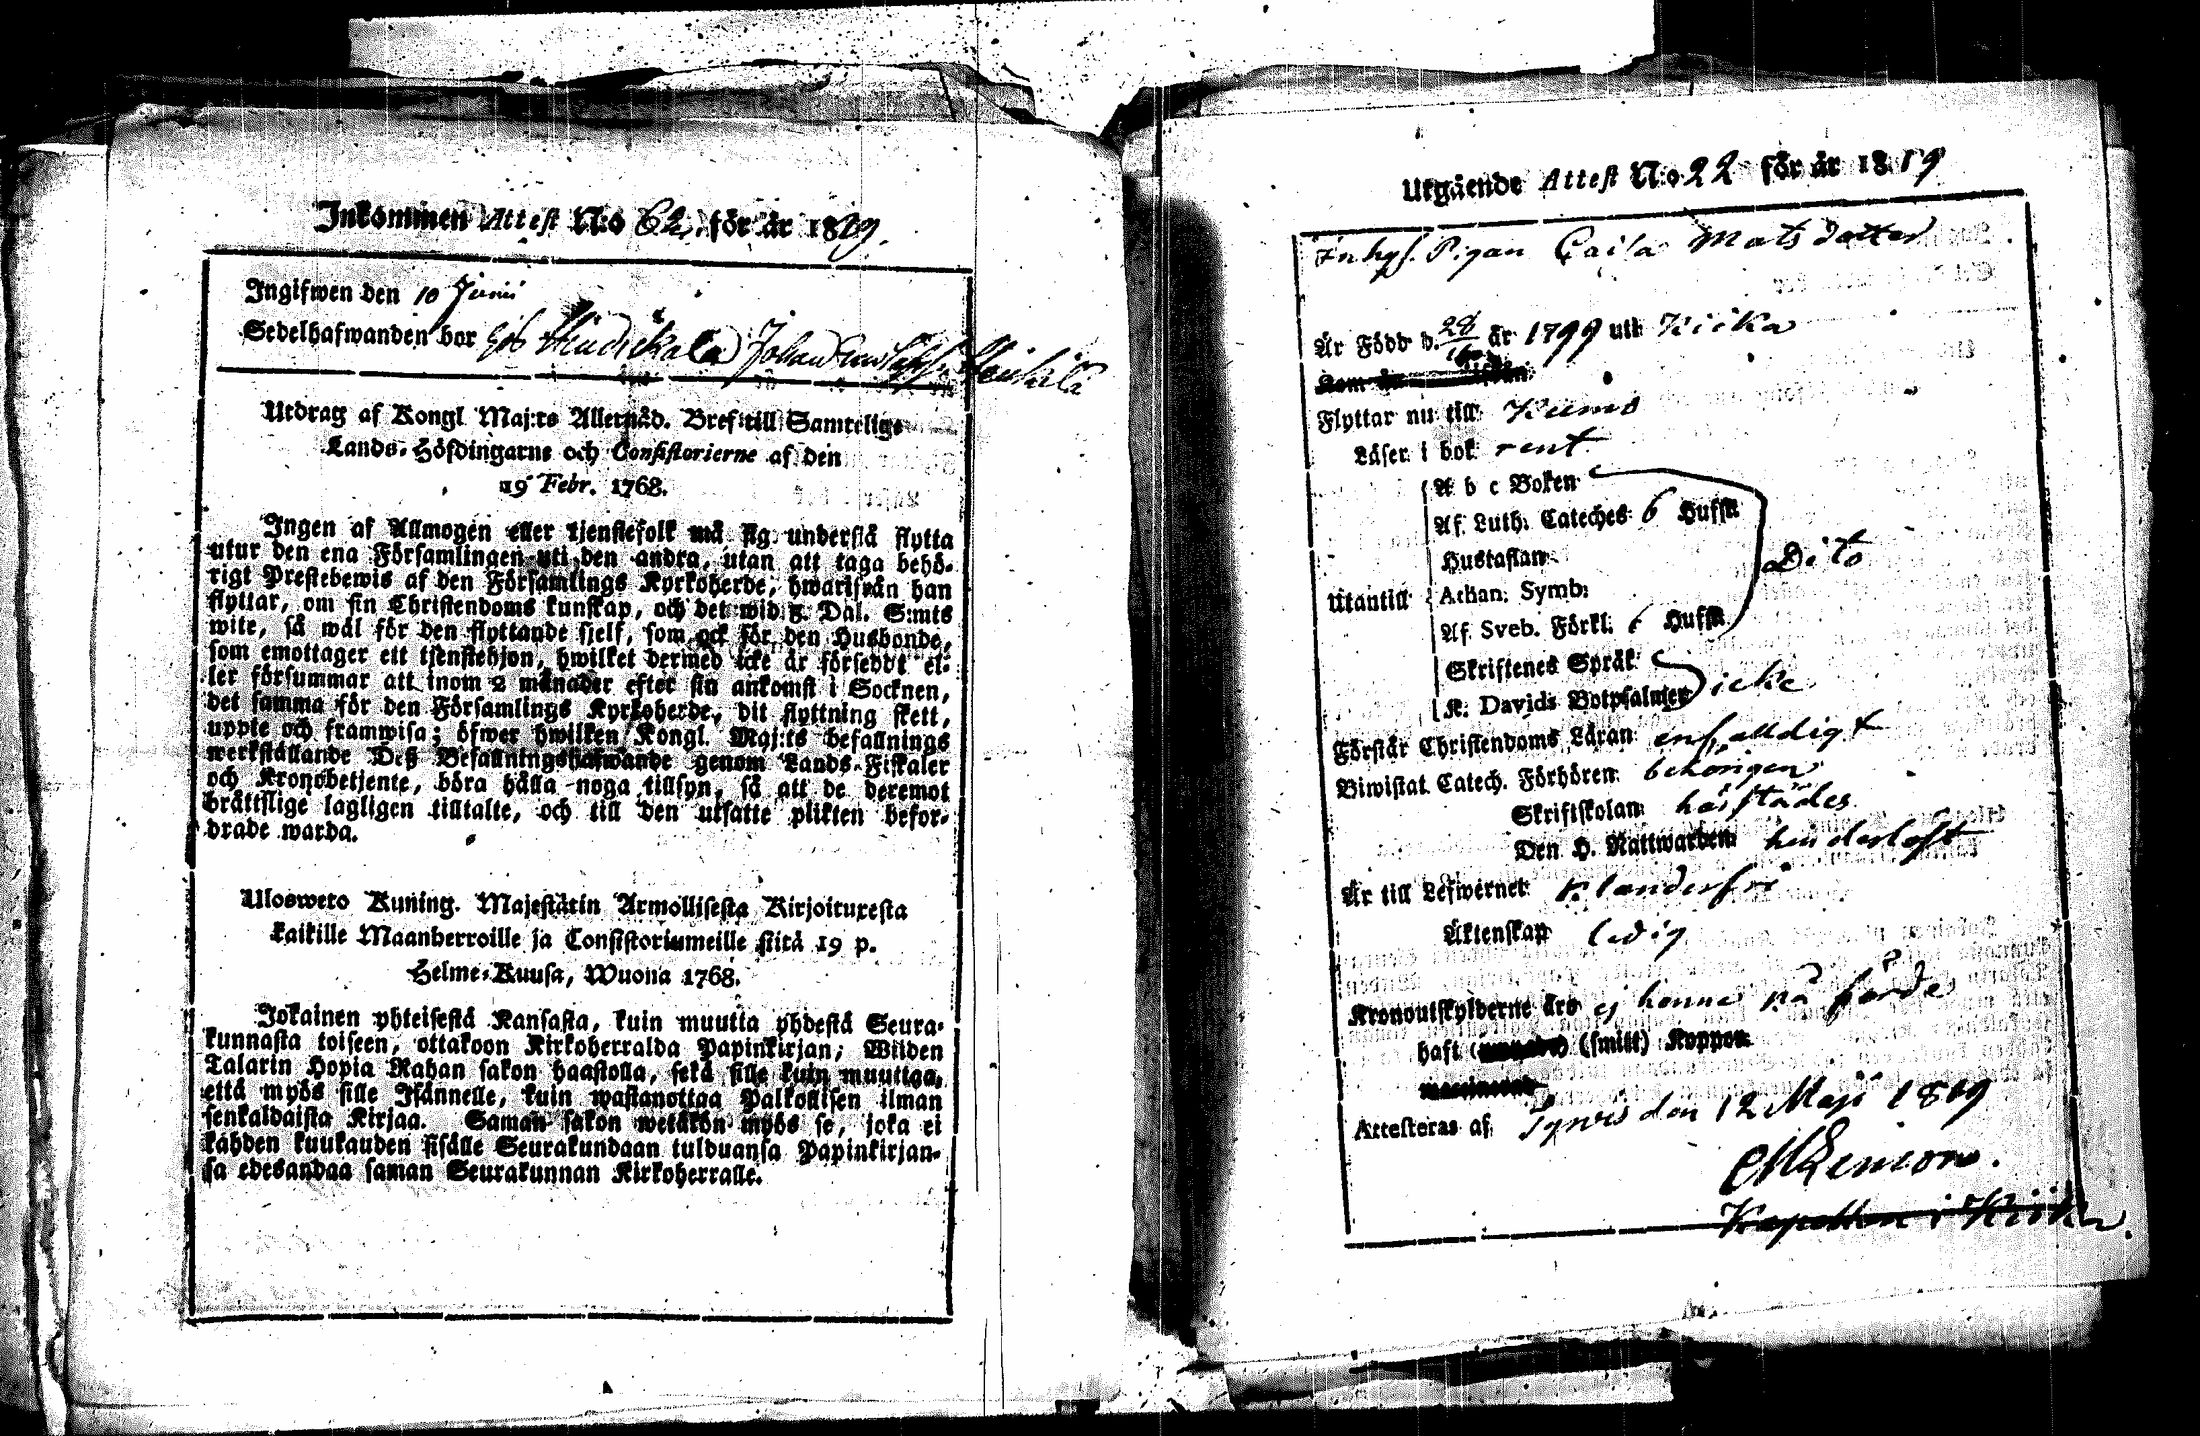 Inkommen Attest N:o 62. för år 1819.
Ingifwen den 10 Junii
Sedelhafwanden bor
Utdrag af Kongl Maj:ts Allernåd. Bref till Samtelige
Lands-Höfdingarne och Consistorierne af den
19 Febr. 1768.
Ingen af Allmogen eller tjenstefolk må sig understå flytta
utur den ena Församlingen uti den andra, utan att taga behö-
rigt Prestebewis af den Församlings Kyrkoherde, hwarifrån han
flyttar, om sin Christendoms kunskap, och det wid 5. Dal. S:mts
wite, så wäl för den flyttande sjelf, som ock för den Husbonde,
som emottager ett tjenstehjon, hwilket dermed icke är försedt el-
ler försummar att inom 2 månader efter sin ankomst i Socknen,
det samma för den Församlings Kyrkoherde, dit flyttning skett,
uppte och framwisa; öfwer hwilken Kongl. Maj:ts befallnings
werkställande Deß Befallningshafwande genom Lands-Fiskaler
och Kronobetjente, böra hålla noga tillsyn, så att de deremot
bråttslige lagligen tilltalte, och till den utsatte plikten befor-
drade warda.
Ulosweto Kuning. Majestätin Armollisesta Kirjoituxesta
kaikille Maanherroille ja Consistoriumeille siitä 19 p.
Helme-Kuusa, Wuona 1768.
Jokainen yhteisestä Kansasta, kuin muutta yhdestä Seura-
kunnasta toiseen, ottakoon Kirkoherralda Papinkirjan; Wiiden
Talarin Hopia Rahan sakon haastolla, sekä sille kuin muuttaa,
että myös sille Isännelle, kuin wastanottaa Palkollisen ilman
senkaldaista Kirjaa. Saman sakon wetäkön myös se, joka ei
kahden kuukauden sisälle Seurakundaan tulduansa Papinkirjan-
sa edesandaa saman Seurakunnan Kirkoherralle.
Utgående Attest N:o 22 för år 1819
Inhys. Pigan Caisa Matsdotter
Är Född d. 28 år 1799 uti Kiika
Flyttar nu till Kumo
Läser i bok rent
A b c Boken
Af Luth. Cateches 6 Hufst.
Hustaflan
Dito
Utantill Athan. Symb:
Af Sveb. Förkl. 6 Hufst.
Skriftenes Språk
K. Davids Botpsalmer icke
Förstår Christendoms Läran enfaldigt
Biwistat Catech. Förhören behörigen
Skriftskolan härstädes
Den H. Nattwarden hinderlöst
Är till Lefwernet klanderfri
Äktenskap ledig
Kronoutskylderne äro ej henne påförde
haft (smitt) Koppor
Attesteras af Tyrvis den 12 Maji 1819
Kapellan i Kiika